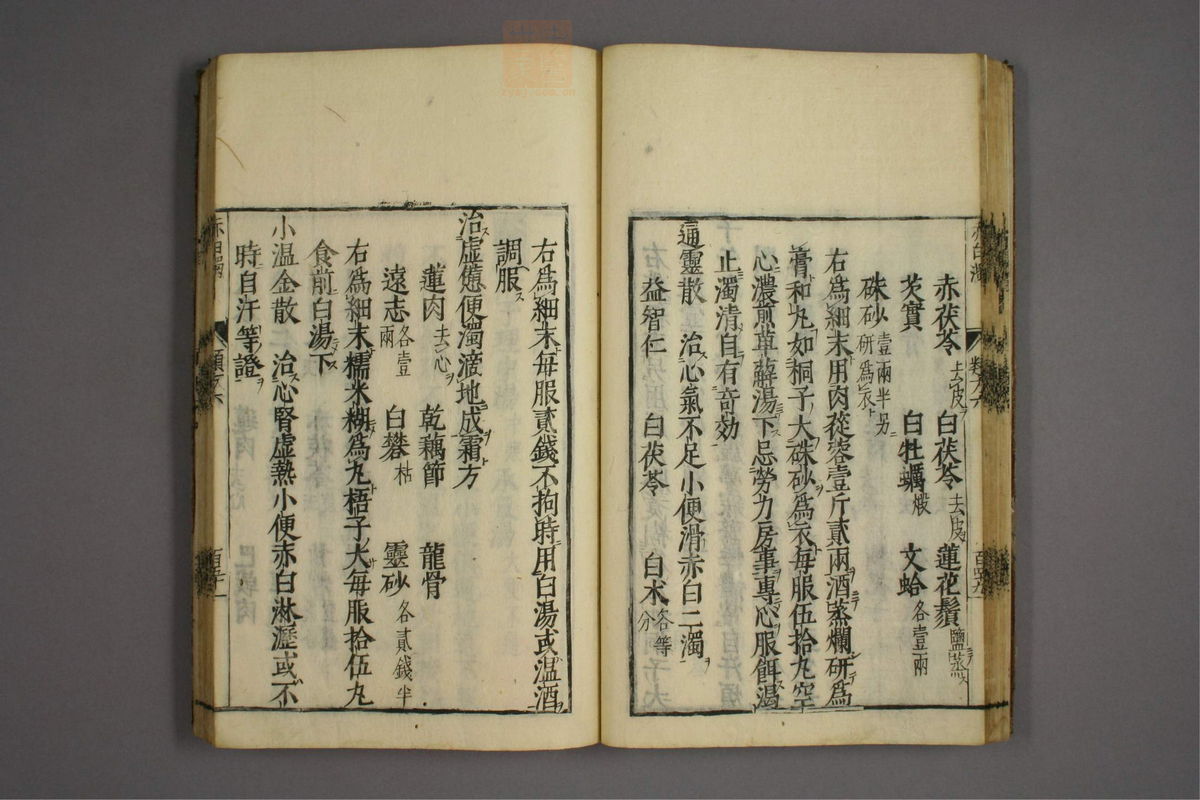 赤茯苓去皮 白茯苓去皮 蓮花鬚鹽蒸
芡實 白牡蠣煅 文蛤各壹兩
硃砂壹兩半另研爲衣
右爲細末用肉蓯蓉壹斤貳兩酒蒸爛研爲
膏和丸如桐子大硃砂爲衣每服伍拾丸空
心濃煎萆薢湯下忌勞力房事專心服餌濁
止濁清自有奇効
通靈散 治心氣不足小便滑赤白二濁
益智仁 白茯苓 白术各等分
右爲細末每服貳錢不拘時用白湯或温酒
調服
治虛憊便濁滴地成霜方
蓮肉去心 乾藕節 龍骨
遠志各壹兩 白礬枯 靈砂各貳錢半
右爲細末糯米糊爲丸梧子大每服拾伍丸
食前白湯下
小温金散 治心腎虛熱小便赤白淋瀝或不
時自汗等證
赤白濁